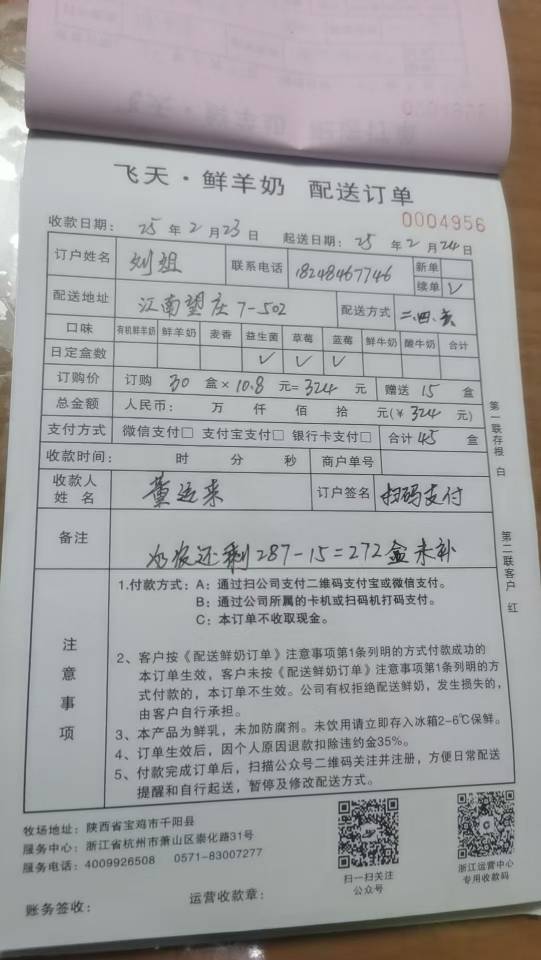 飞天·鲜羊奶 配送订单
0004956
收款日期: 25 年 2 月 23 日 起送日期: 25 年 2 月 24 日
订户姓名 刘姐 联系电话 18248467746 新单
续单 ✓
配送地址 江南望庄 7-502 配送方式 二.四.六
口味 有机鲜羊奶 鲜羊奶 麦香 益生菌 草莓 蓝莓 鲜牛奶 酸牛奶 合计
日定盒数 ✓ ✓ ✓
订购价 订购 30 盒× 10.8 元= 324 元 赠送 15 盒
总金额 人民币: 万 仟 佰 拾 元(¥ 324 元)
支付方式 微信支付□ 支付宝支付□ 银行卡支付□ 合计 45 盒
收款时间: 时 分 秒 商户单号
收款人姓名 董运来 订户签名 扫码支付
备注 还剩287-15=272盒未补
第一联存根 白
第二联客户 红
注意事项
1.付款方式: A: 通过扫公司支付二维码支付宝或微信支付。
B: 通过公司所属的卡机或扫码机打码支付。
C: 本订单不收取现金。
2、客户按《配送鲜奶订单》注意事项第1条列明的方式付款成功的
本订单生效, 客户未按《配送鲜奶订单》注意事项第1条列明的方
式付款的, 本订单不生效。公司有权拒绝配送鲜奶, 发生损失的,
由客户自行承担。
3、本产品为鲜乳, 未加防腐剂。未饮用请立即存入冰箱2-6℃保鲜。
4、订单生效后, 因个人原因退款扣除违约金35%。
5、付款完成订单后, 扫描公众号二维码关注并注册, 方便日常配送
提醒和自行起送, 暂停及修改配送方式。
牧场地址: 陕西省宝鸡市千阳县
服务中心: 浙江省杭州市萧山区崇化路31号
服务电话: 4009926508 0571-83007277
扫一扫关注
公众号
浙江运营中心
专用收款码
账务签收: 运营收款章: